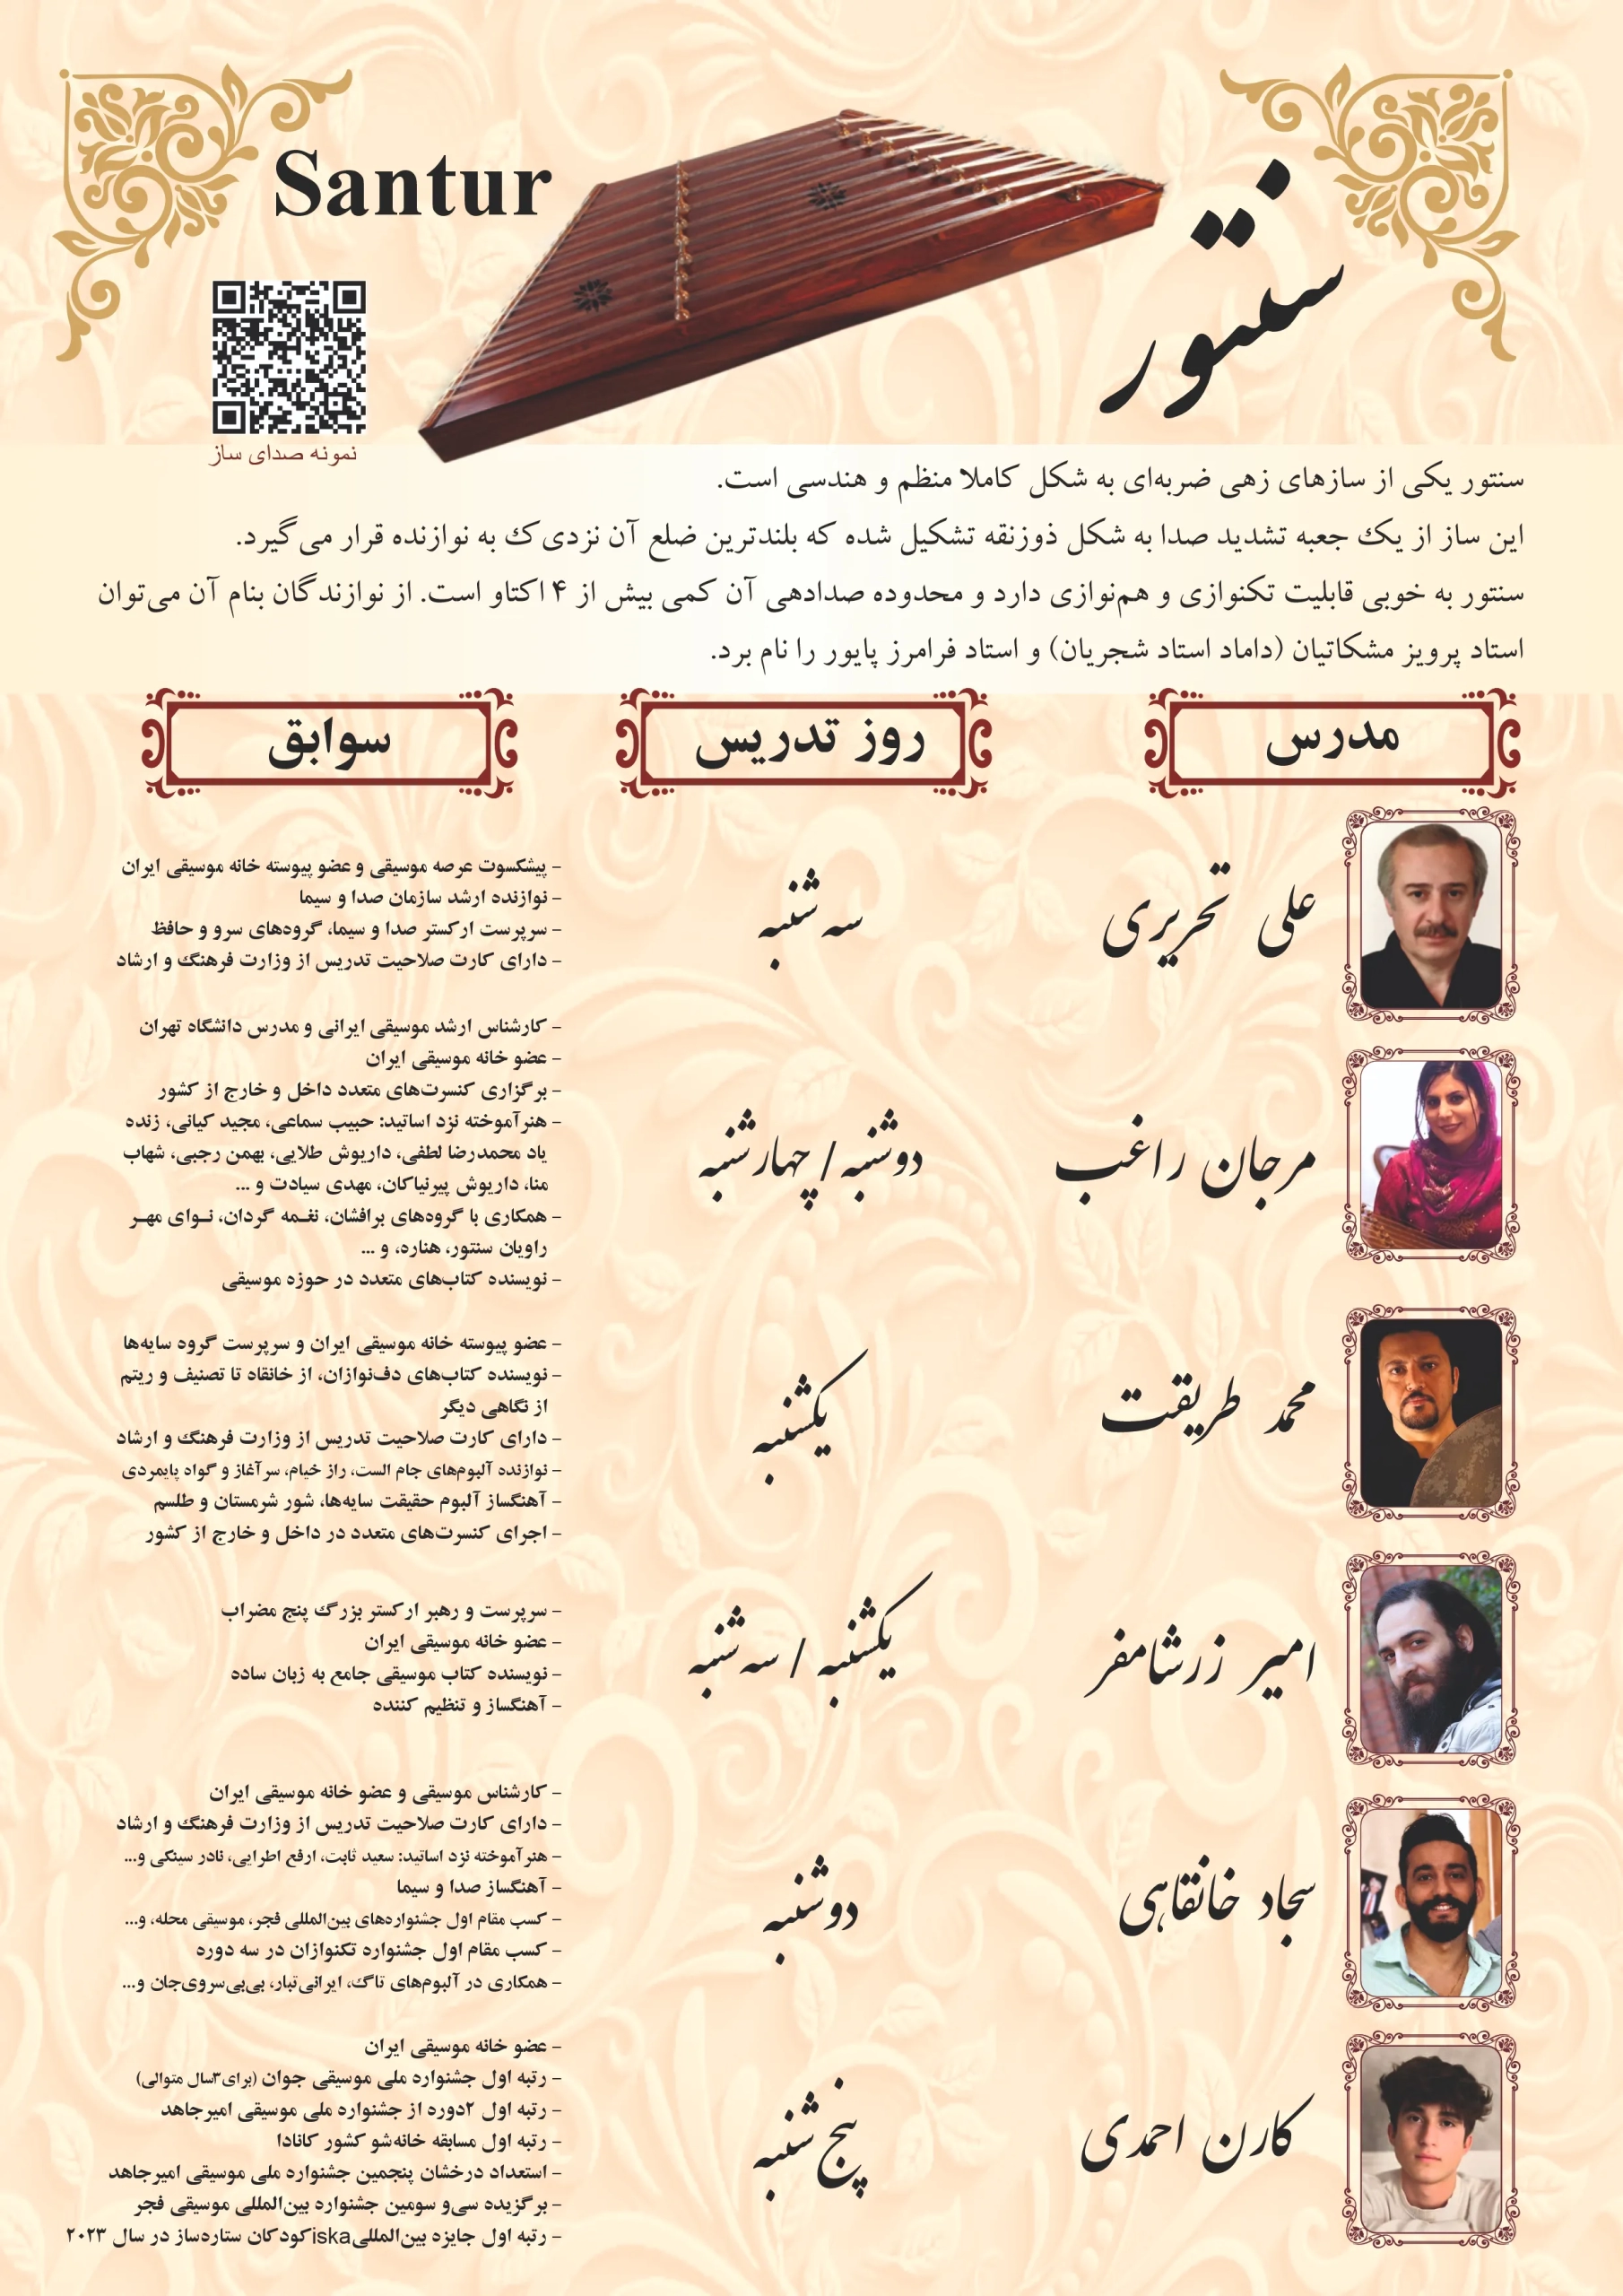 Santur
سنتور
نمونه صدای ساز
سنتور یکی از سازهای زهی ضربه‌ای به شکل کاملا منظم و هندسی است.
این ساز از یک جعبه تشدید صدا به شکل ذوزنقه تشکیل شده که بلندترین ضلع آن نزدی ک به نوازنده قرار می گیرد.
سنتور به خوبی قابلیت تکنوازی و هم‌نوازی دارد و محدوده صدادهی آن کمی بیش از ۴ اکتاو است. از نوازندگان بنام آن می‌توان
استاد پرویز مشکاتیان (داماد استاد شجریان) و استاد فرامرز پایور را نام برد.
مدرس
روز تدریس
سوابق
علی تحریری
سه شنبه
- پیشکسوت عرصه موسیقی و عضو پیوسته خانه موسیقی ایران
- نوازنده ارشد سازمان صدا و سیما
- سرپرست ارکستر صدا و سیما، گروه‌های سرو و حافظ
- دارای کارت صلاحیت تدریس از وزارت فرهنگ و ارشاد
مرجان راغب
دوشنبه / چهارشنبه
- کارشناس ارشد موسیقی ایرانی و مدرس دانشگاه تهران
- عضو خانه موسیقی ایران
- برگزاری کنسرت‌های متعدد داخل و خارج از کشور
- هنرآموخته نزد اساتید: حبیب سماعی، مجید کیانی، زنده
یاد محمدرضا لطفی، داریوش طلایی، بهمن رجبی، شهاب
منا، داریوش پیرنیاکان، مهدی سیادت و ...
- همکاری با گروه‌های برافشان، نغـمه گردان، نـوای مهـر
راویان سنتور، هناره، و ...
- نویسنده کتاب‌های متعدد در حوزه موسیقی
محمد طریقت
یکشنبه
- عضو پیوسته خانه موسیقی ایران و سرپرست گروه سایه‌ها
- نویسنده کتاب‌های دف‌نوازان، از خانقاه تا تصنیف و ریتم
از نگاهی دیگر
- دارای کارت صلاحیت تدریس از وزارت فرهنگ و ارشاد
- نوازنده آلبوم‌های جام الست، راز خیام، سرآغاز و گواه پایمردی
- آهنگساز آلبوم حقیقت سایه‌ها، شور شرمستان و طلسم
- اجرای کنسرت‌های متعدد در داخل و خارج از کشور
امیر زرشامفر
یکشنبه / سه شنبه
- سرپرست و رهبر ارکستر بزرگ پنج مضراب
- عضو خانه موسیقی ایران
- نویسنده کتاب موسیقی جامع به زبان ساده
- آهنگساز و تنظیم کننده
سجاد خانقاهی
دوشنبه
- کارشناس موسیقی و عضو خانه موسیقی ایران
- دارای کارت صلاحیت تدریس از وزارت فرهنگ و ارشاد
- هنرآموخته نزد اساتید: سعید ثابت، ارفع اطرایی، نادر سینکی و...
- آهنگساز صدا و سیما
- کسب مقام اول جشنواره‌های بین‌المللی فجر، موسیقی محله، و...
- کسب مقام اول جشنواره تکنوازان در سه دوره
- همکاری در آلبوم‌های تاگ، ایرانی‌تبار، بی‌بی‌سروی‌جان و...
کارن احمدی
پنج شنبه
- عضو خانه موسیقی ایران
- رتبه اول جشنواره ملی موسیقی جوان (برای۳سال متوالی)
- رتبه اول ۲دوره از جشنواره ملی موسیقی امیرجاهد
- رتبه اول مسابقه خانه‌شو کشور کانادا
- استعداد درخشان پنجمین جشنواره ملی موسیقی امیرجاهد
- برگزیده سی‌و سومین جشنواره بین‌المللی موسیقی فجر
- رتبه اول جایزه بین‌المللیiskaکودکان ستاره‌ساز در سال ۲۰۲۳